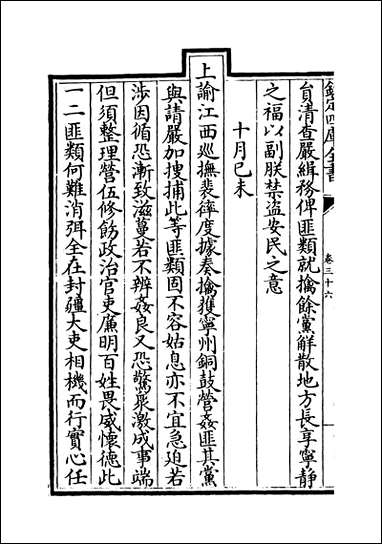 欽定四庫全書
卷三十六
貟清查嚴緝務俾匪類就擒餘黨解散地方長享寧靜
之福以副朕禁盗安民之意
十月己未
上諭江西巡撫裴𢕑度據奏擒獲寧州銅鼓營姦匪其黨
與請嚴加搜捕此等匪類固不容姑息亦不宜急迫若
涉因循恐漸致滋蔓若不辨姦良又恐驚衆激成事端
但須整理營伍修飭政治官吏廉明百姓畏威懷德此
一二匪類何難消弭全在封疆大吏相機而行實心任